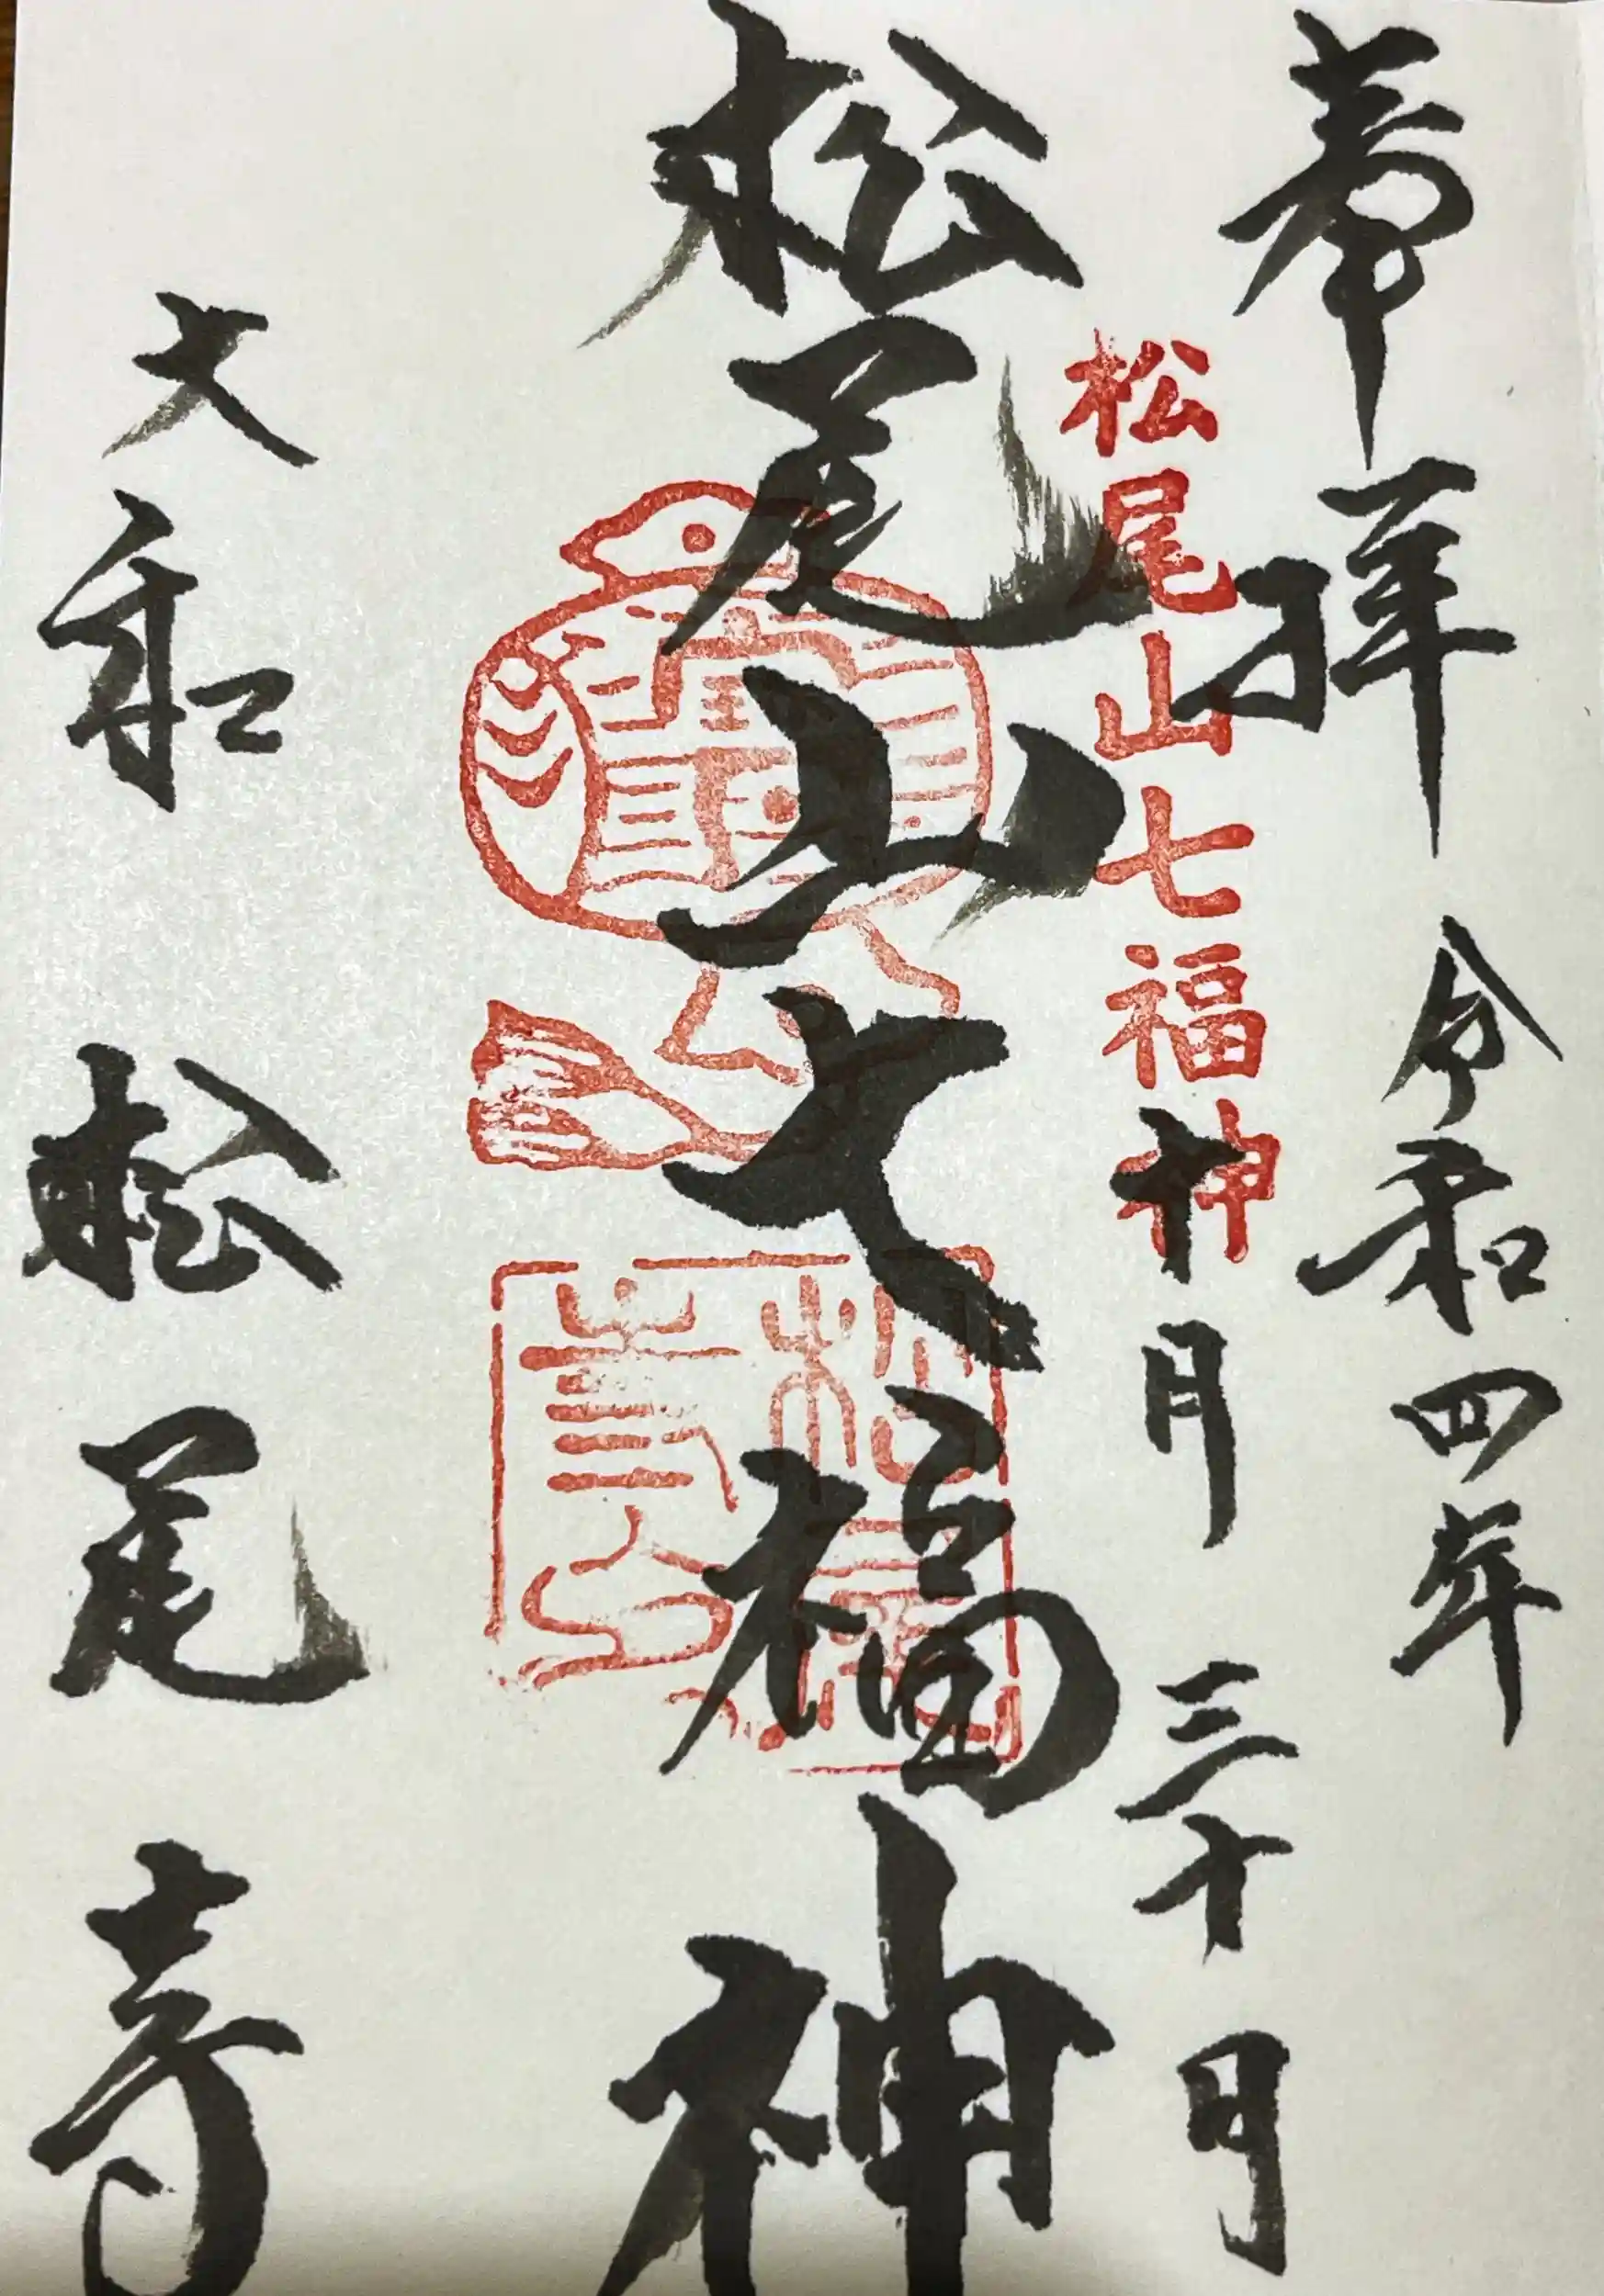 奉拝
令和四年
十月三十日
松尾山七福神
松尾山七福神
大和
松尾寺